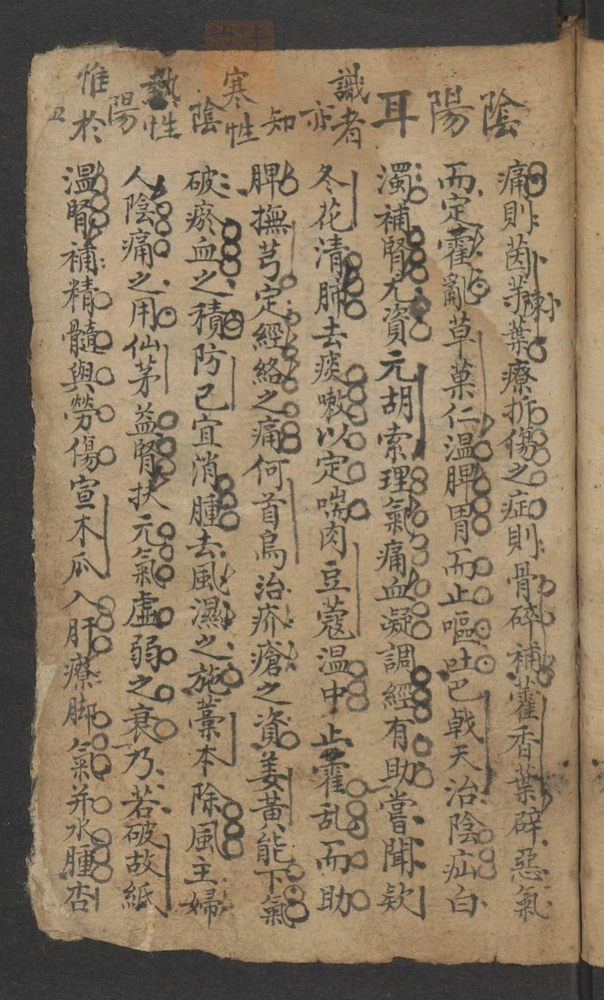 陰陽耳
識者亦知
寒性陰
熱性陽
惟於
痛則茵芋葉療折傷之症則骨碎補藿香葉辟惡氣
而定霍亂草菓仁溫脾胃而止嘔吐巴戟天治陰疝白
濁補腎尤資元胡索理氣痛血凝調經有助嘗聞欵
冬花清肺去痰嗽以定喘肉豆蔻温中止霍乱而助
脾撫芎定經絡之痛何首烏治疥瘡之資姜黃能下氣
破瘀血之積防己宜消腫去風濕之施藁本除風主婦
人陰痛之用仙茅益腎扶元氣虛弱之衰乃若破故紙
溫腎補精髓與勞傷宣木瓜入肝療脚氣并水腫杏